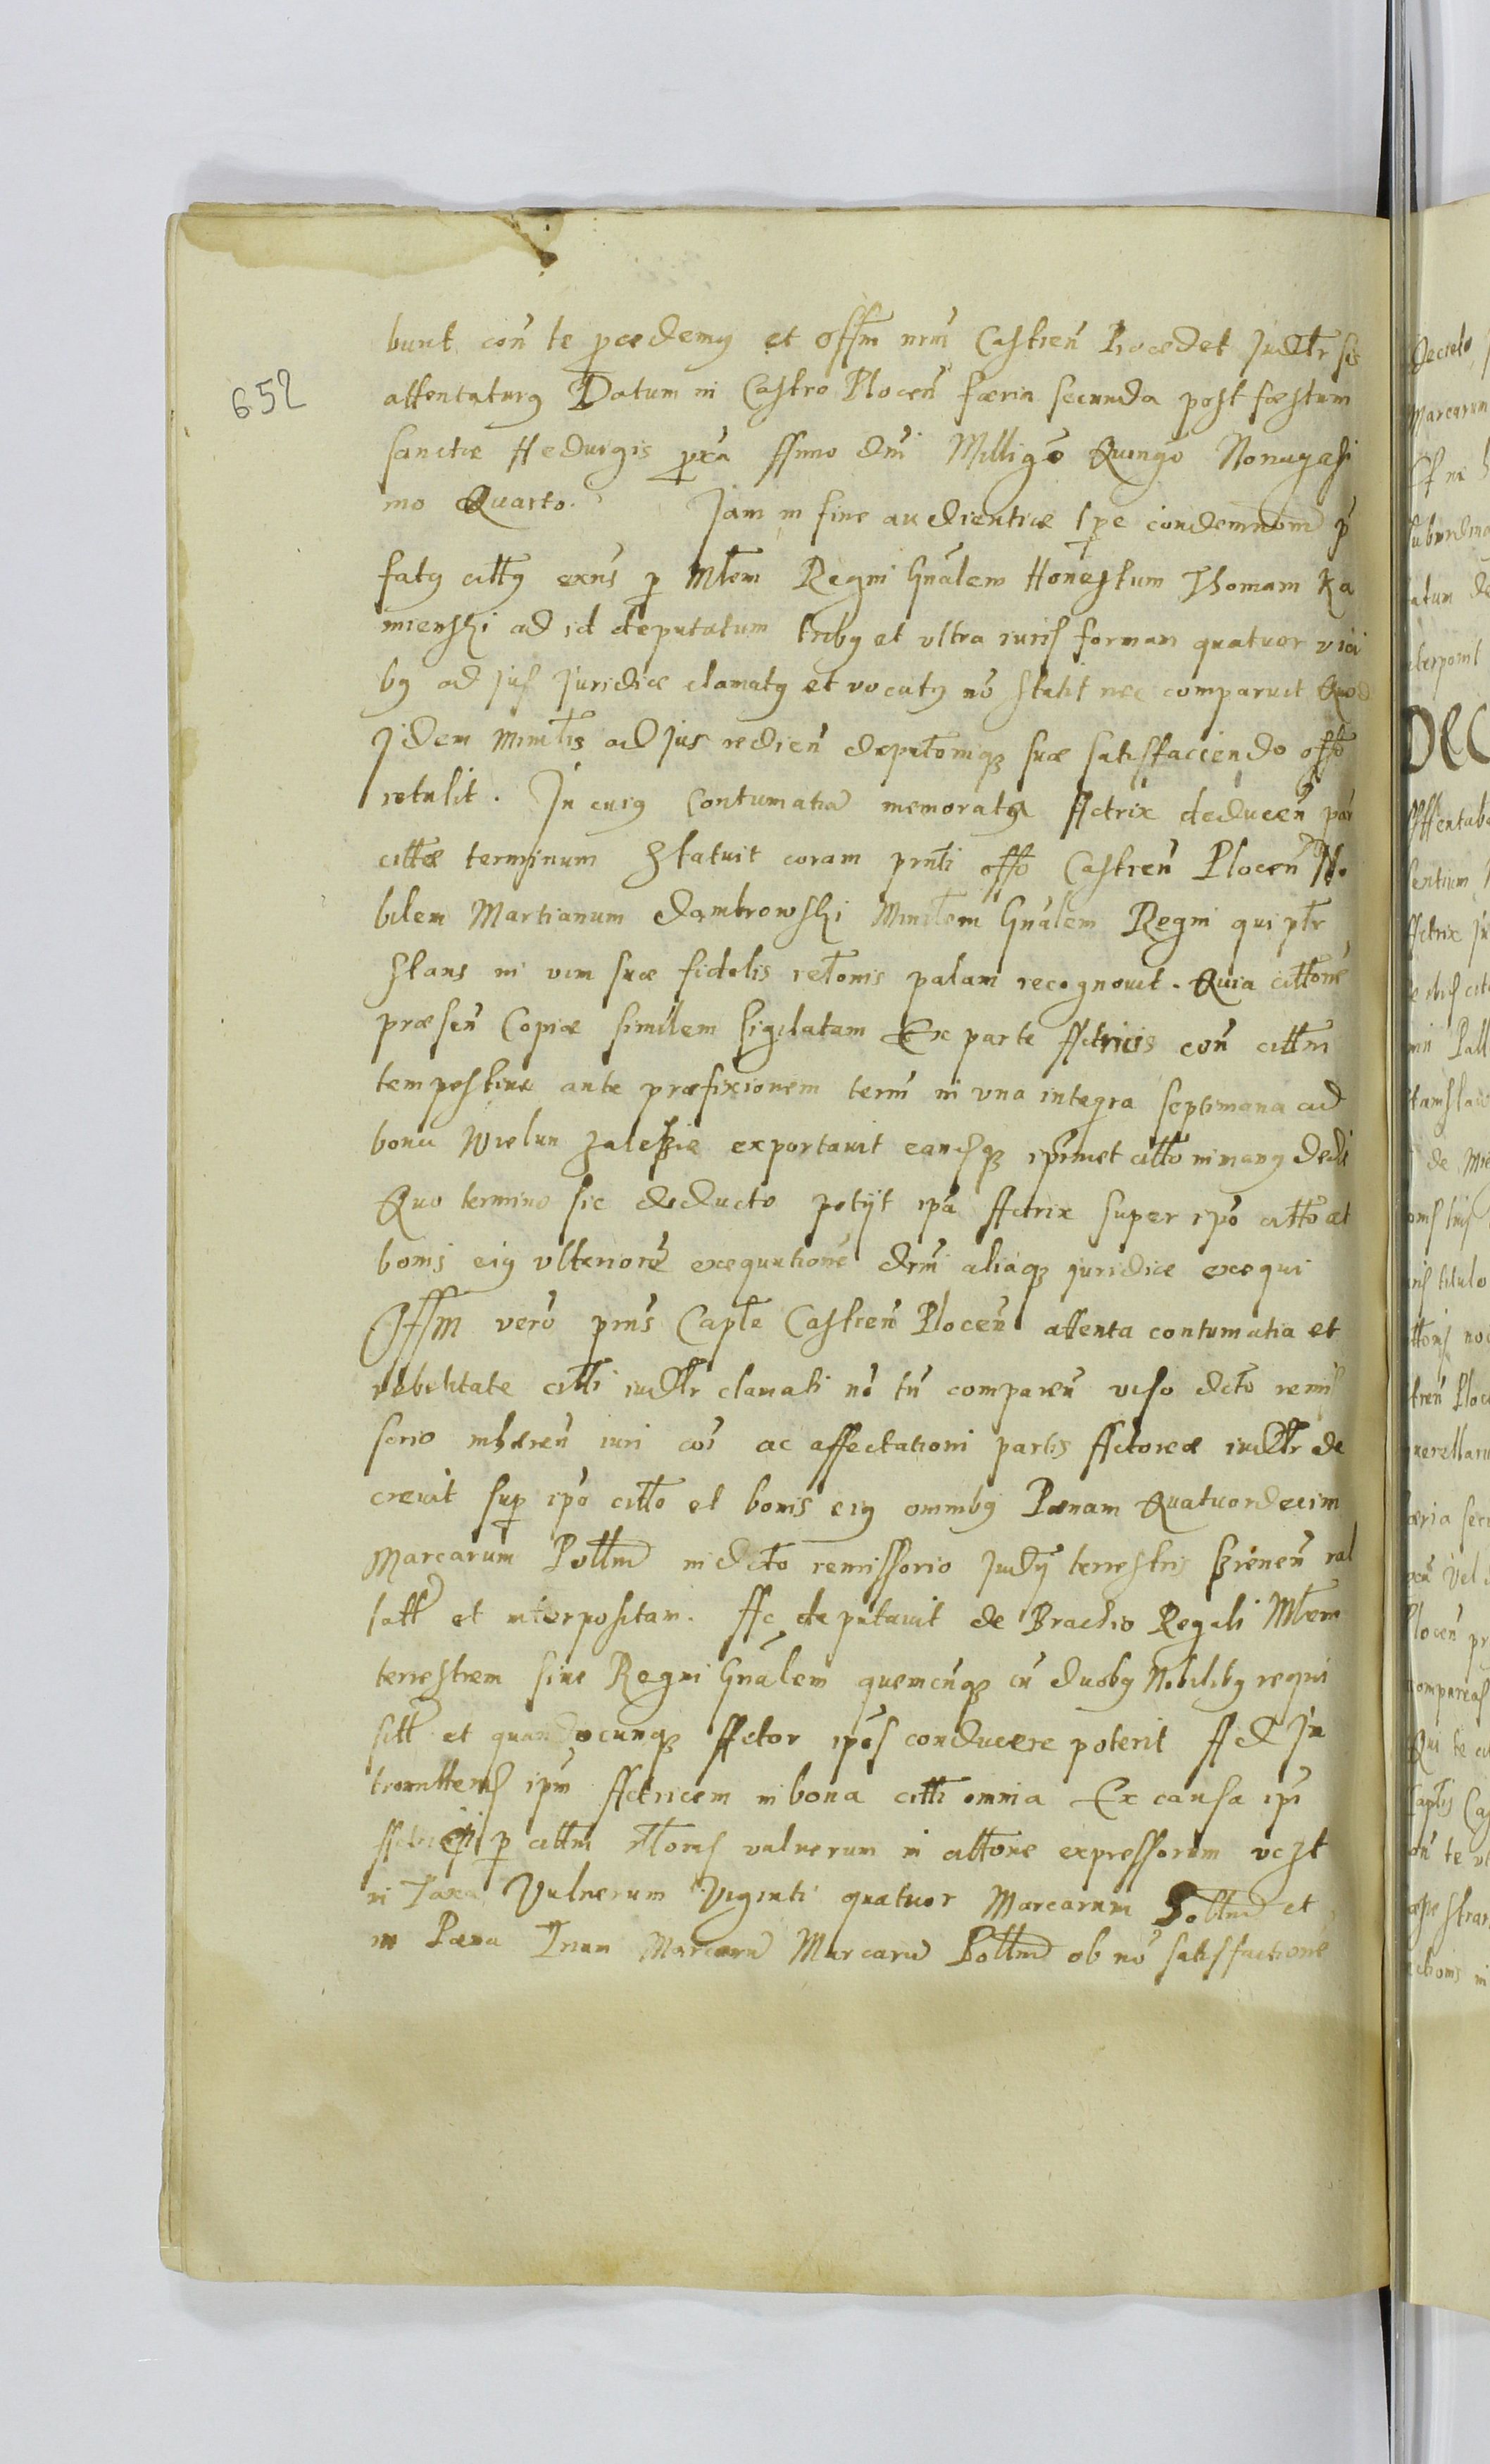 652
bunt con̄ te pcedemꝯ et offm nrm̄ Castren̄ Procedet Judltr sis
attentaturꝯ Datum in Castro Plocen̄ færia secunda post fæstum
sanctæ Hedvigis pxa Anno Dni Milligō Quingō Nonagesi
mo Quarto. Jam in fine audientiæ spe condemnōm p̄
fatꝯ cittꝯ exn̄s p Mtlem Regni Gnālem Honestum Thomam Ka
mienski ad id deputatum tribꝯ et ultra iuris forman quatuor vici
bꝯ ad jus Juridice clamatꝯ et vocatꝯ nō stetit nec comparuit Quod
Jdem Minitlis ad Jus redien̄ deputōniqꝫ suæ satisfaciendo offō
retulit. In cuiꝯ Contumatia memorata Actrix deducen̄ par
cittæ terminum Statuit coram prnti offō Castren̄ Plocen̄ No
bilem Martianum Dambrowski Minitlem Gnālem Regni qui pltr
stans in vim suæ fidelis retōnis palam recognouit. Quia cittōnē
præsen̄ Copiæ similem sigilatam Ex parte Actricis con̄ cittm
tempestiue ante præfixionem term̄ in vna integra septimana ad
bona Wielun Zaleskie exportauit eandqꝫ ipsimet cittō in manꝯ dedit
Quo termino sic deducto petijt ipā Actrix super ipō cittō et
bonis eiꝯ vlteriorē exequutionē drm̄ aliāqꝫ juridice exequi
Offm verō prn̄s Caplte Castren̄ Plocen̄ attenta contumatia et
rebelitate citti iudltr clamati nō tn̄ comparen̄ viso dctō remis
sorio inhæren̄ iuri coī ac affectationi partis Actoreæ iudltr de
creuit sup ipō cittō et bonis eiꝯ omnibꝯ Pænam Quatuordecim
Marcarum Polltm in dctō remissorio Judij terrestris Srienen̄ ral
satt et interpositam. Ac deputauit de Brachio Regali Mtlem
terrestrem siue Regni Gnālem quemcunqꝫ cū duobꝯ Nobilibꝯ requi
sitt et quandocunqꝫ Actor ipōs conducere poterit Ad In
tromittend ipm Actricem in bona citti omnia Ex causa ipi
Actrici p cittm vulnerum in cittōne expressorum vczt
in Taxa Vulnerum Viginti quatuor Marcarum Polltm et
in Pæna Trium Marcarū Marcarū Polltm ob nō satisfactionē